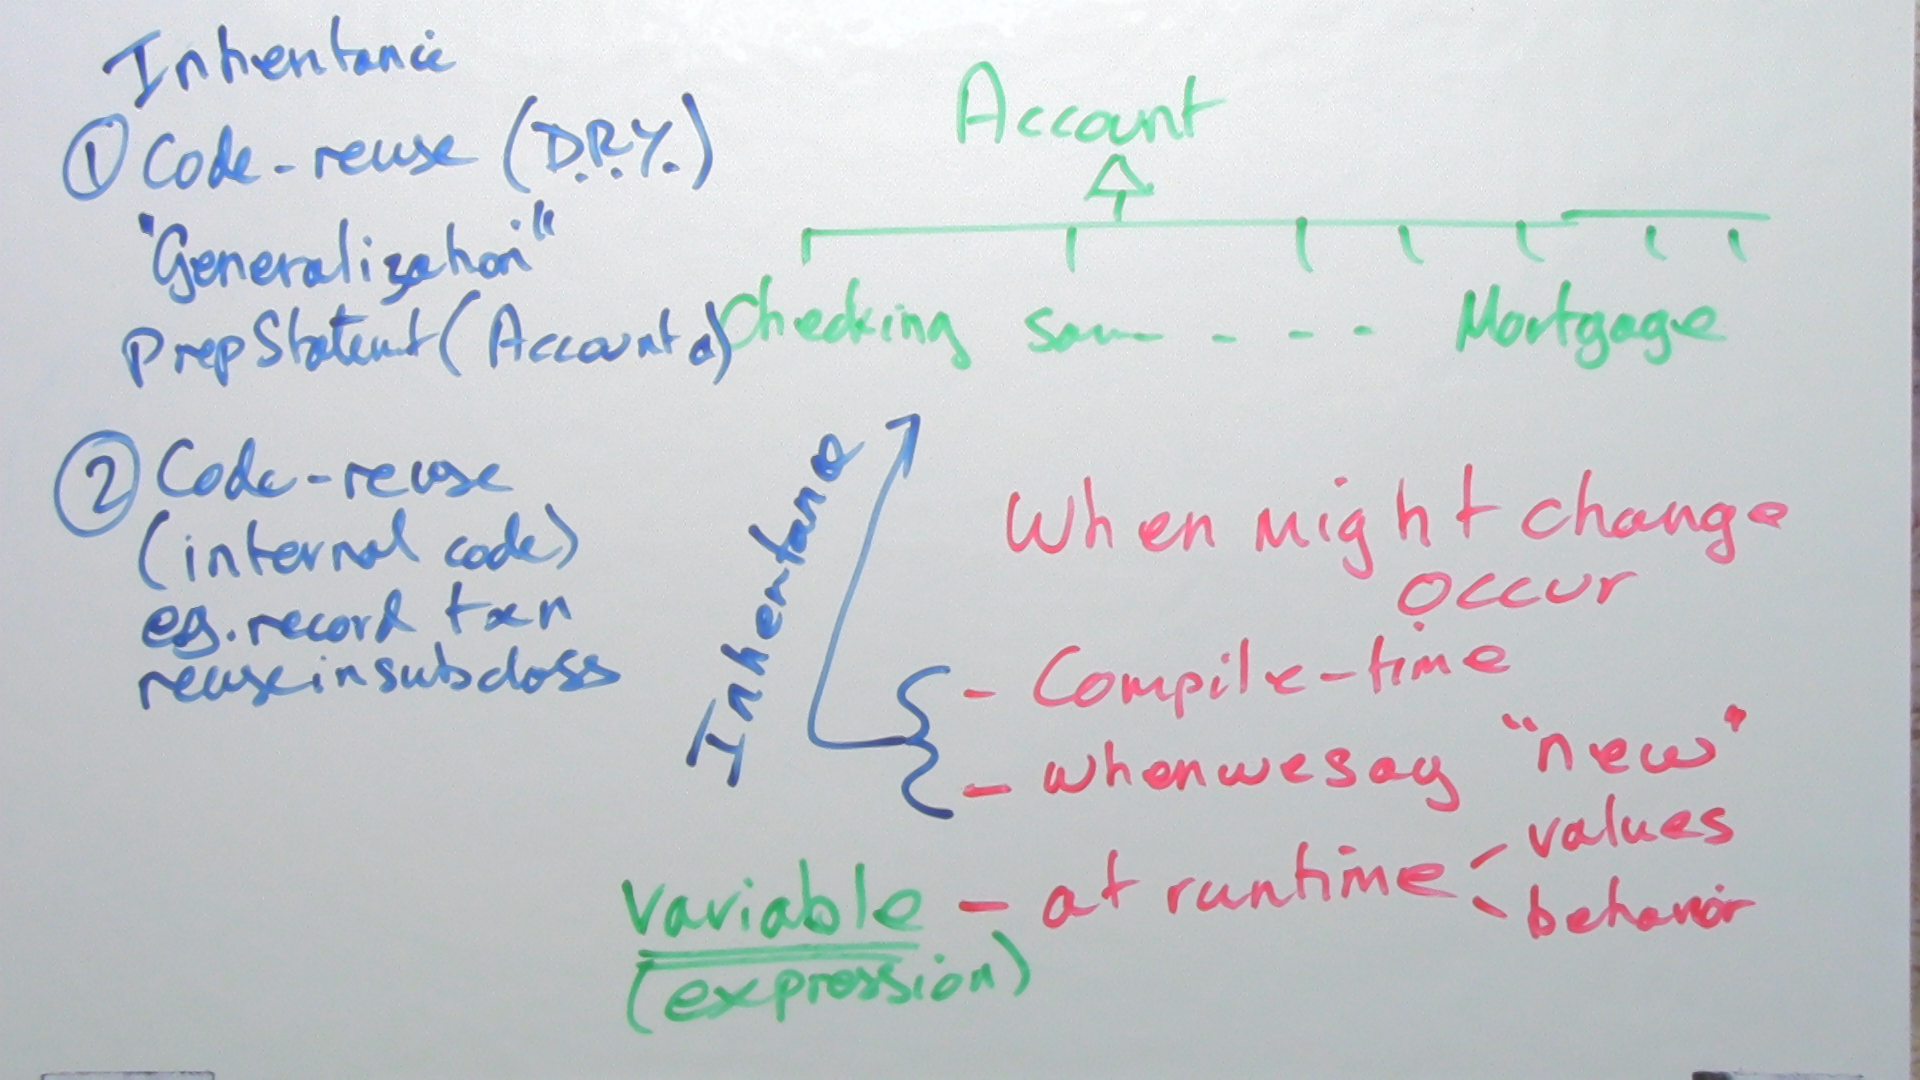 Inheritance
① Code-reuse (D.R.Y.)
"Generalization"
PrepStatemt (Account a)
② Code-reuse
(internal code)
eg. record txn
reuse in subclass
Account
Checking Sav - - - Mortgage
Inheritance
When might change
occur
- Compile-time
- when we say "new"
variable - at runtime values
behavior
(expression)